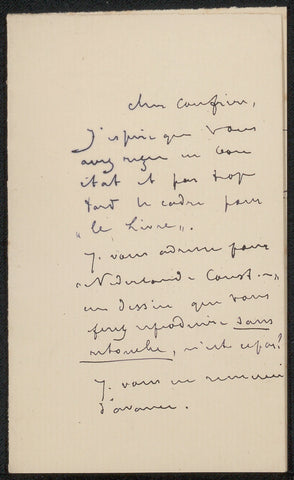 cher confrère,
J'espère que vous
avez reçu en bon
état et pas trop
tard le cadre pour
"le Livre".
Je vous adresse pour
"Nederlande Const"
un dessin que vous
ferez reproduire sans
retouche, n'est ce pas?
Je vous en remercie
d'avance.